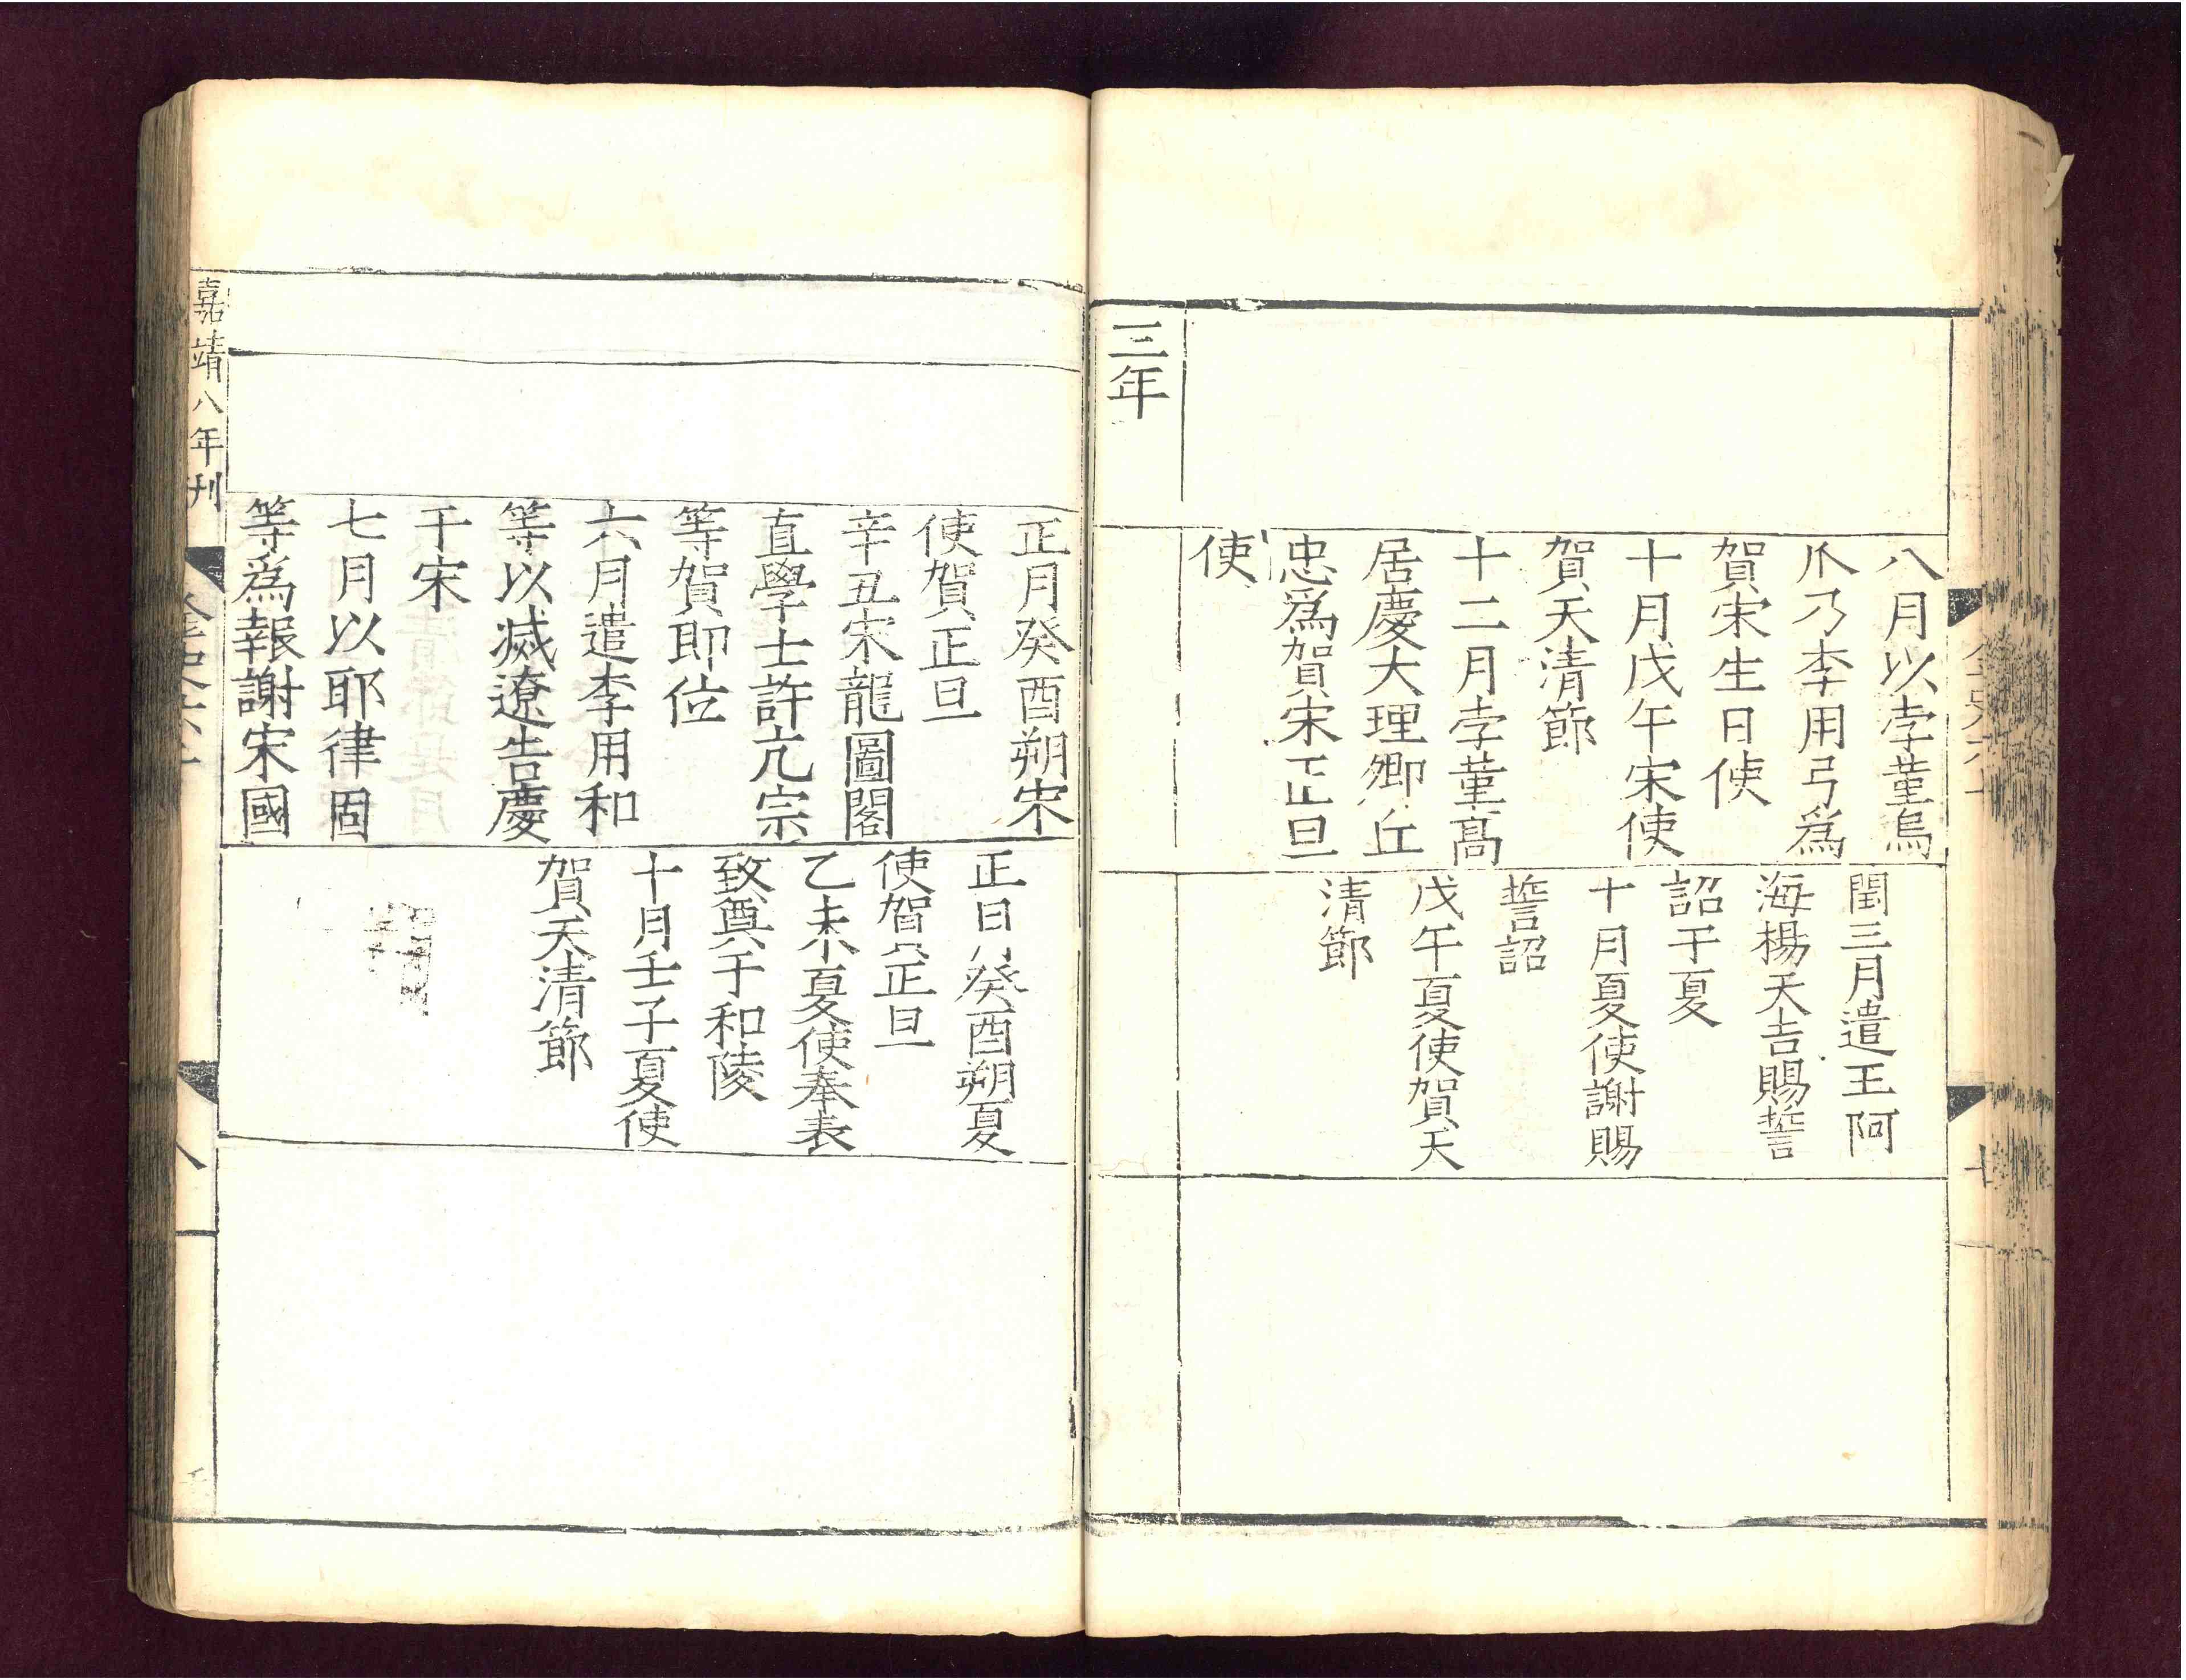 八月以孛菫烏
爪乃李用弓爲
賀宋生日使
十月戊午宋使
賀天清節
十二月孛菫高
居慶大理卿丘
忠爲賀宋正旦
使
閏三月遣王阿
海楊天吉賜誓
詔于夏
十月夏使謝賜
誓詔
戊午夏使賀天
清節
三年
正月癸酉朔宋
使賀正旦
辛丑宋龍圖閣
直學士許亢宗
等賀即位
六月遣李用和
等以滅遼告慶
于宋
七月以耶律固
等爲報謝宋國
正月癸酉朔夏
使賀正旦
乙未夏使奉表
致奠于和陵
十月壬子夏使
賀天清節
嘉靖八年刊
八